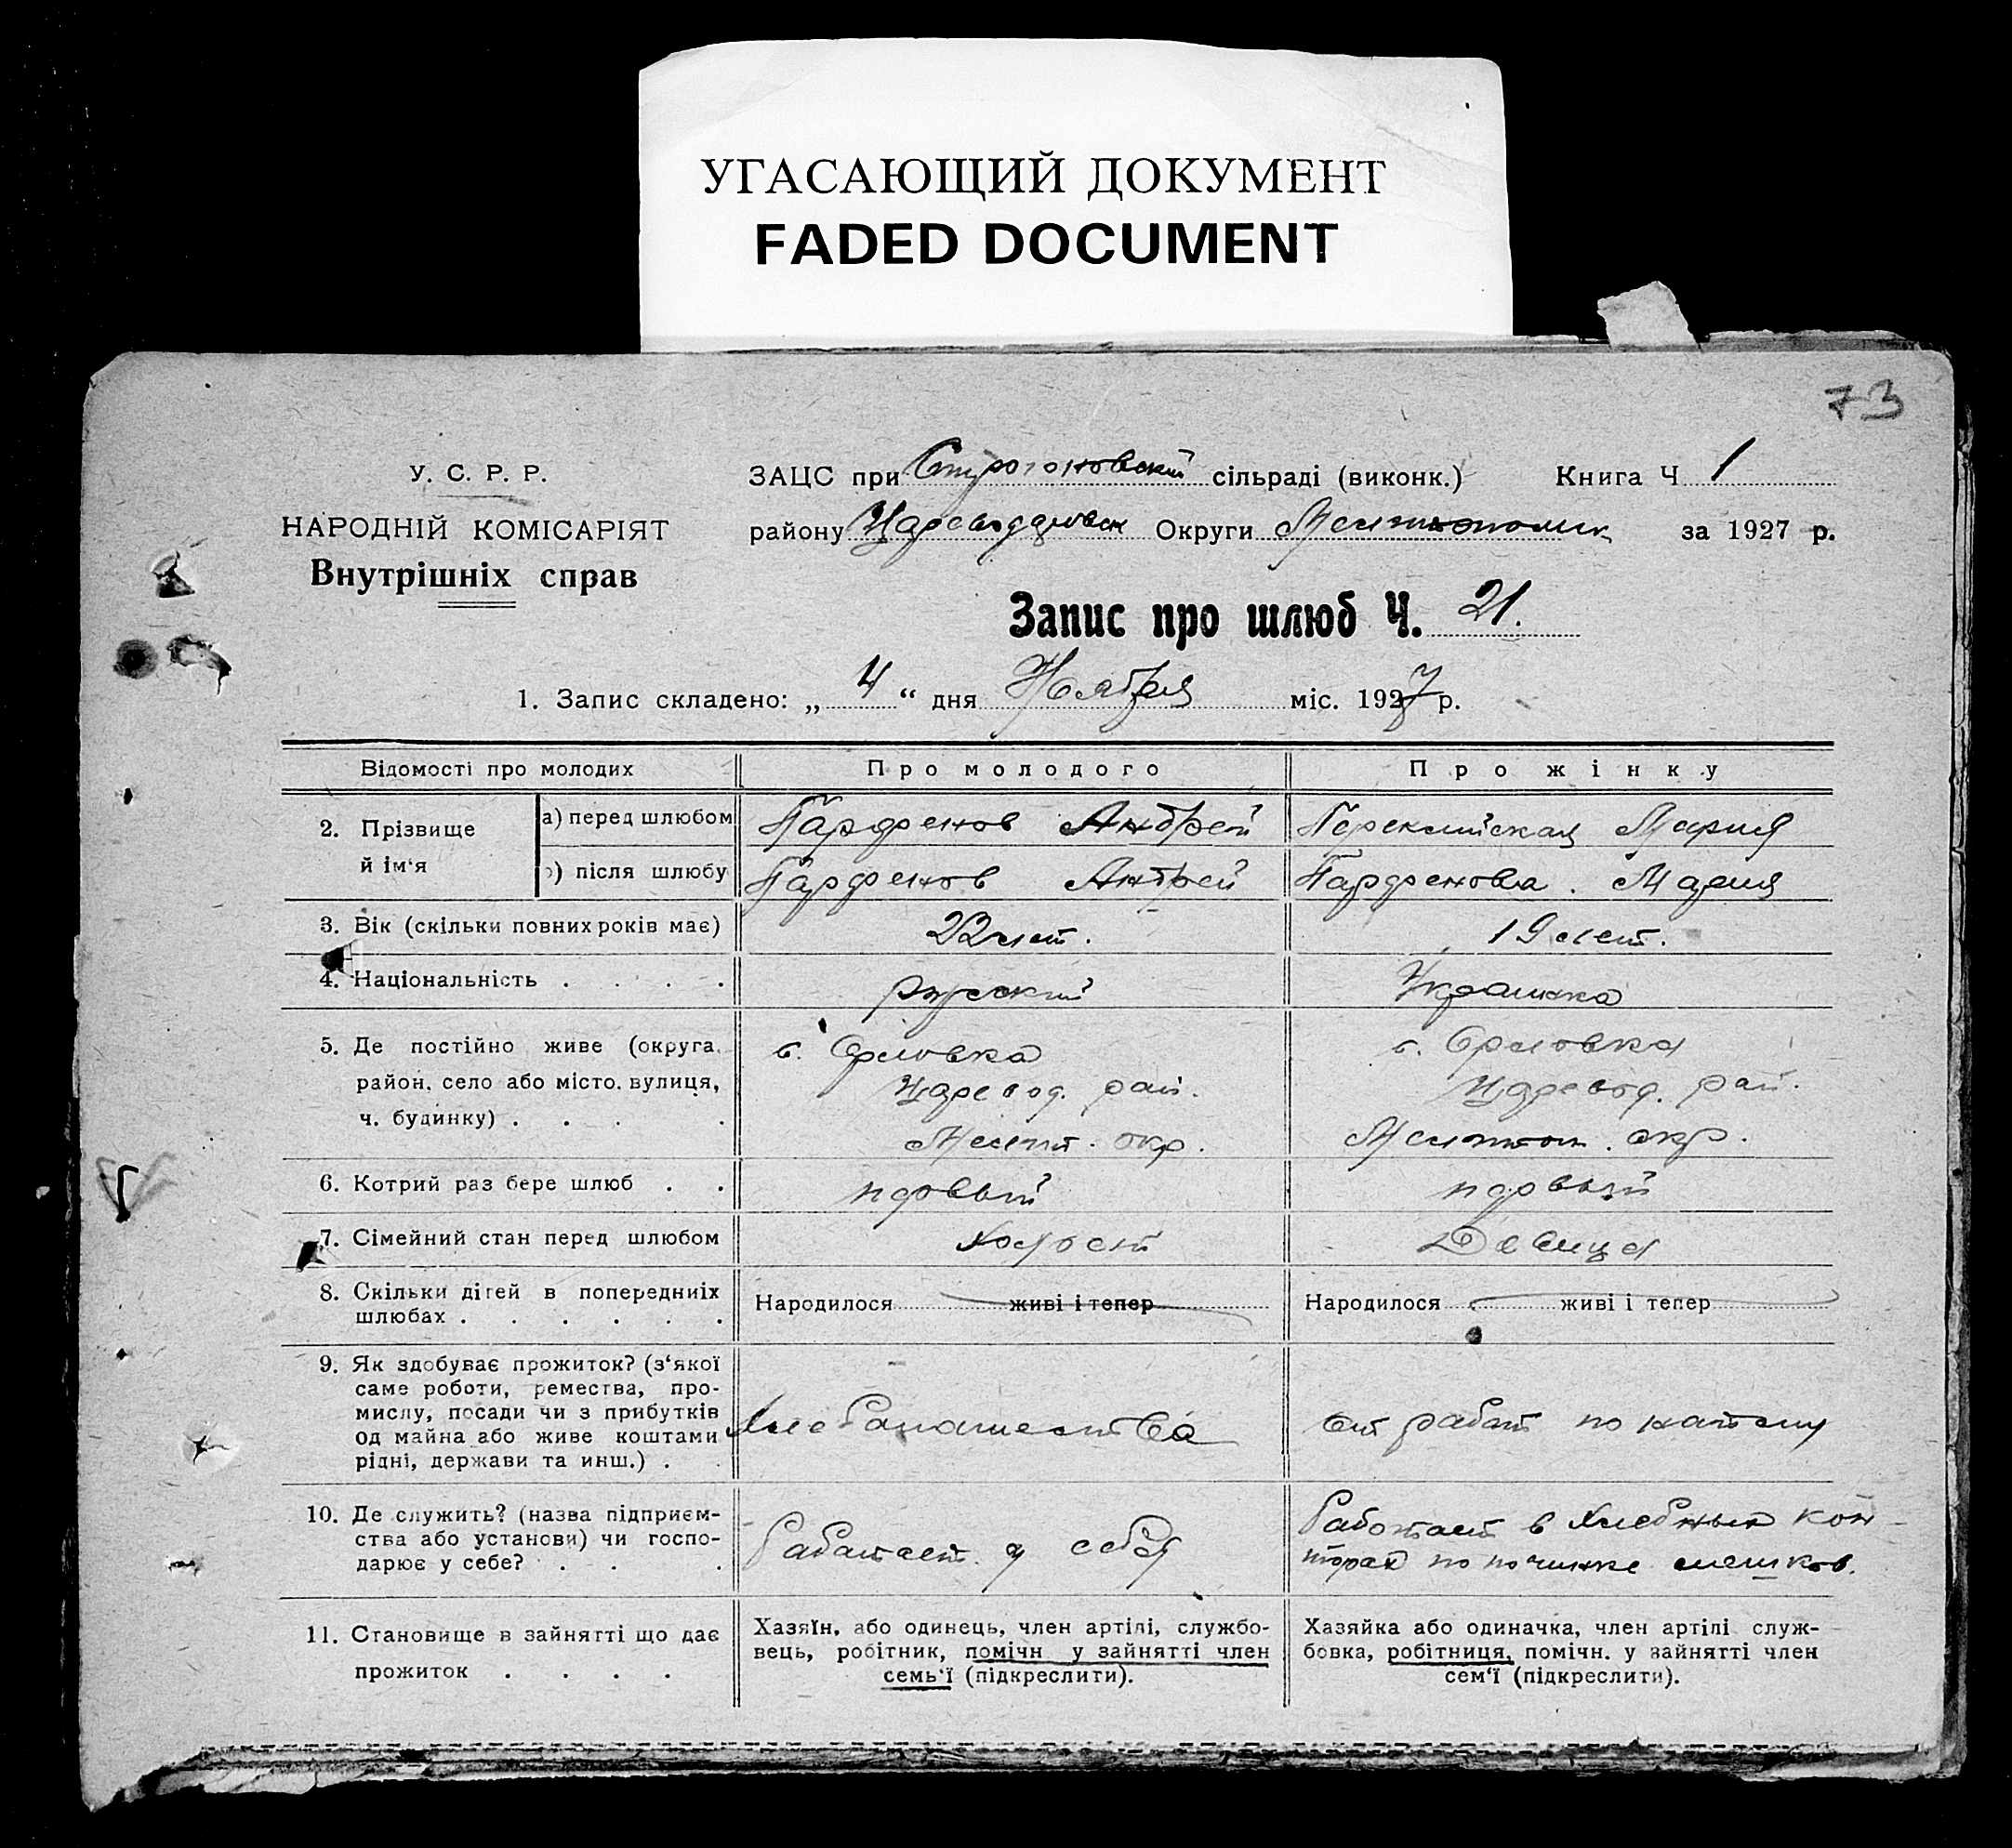 УГАСАЮЩИЙ ДОКУМЕНТ
FADED DOCUMENT
73
У. С. Р. Р.
НАРОДНІЙ КОМІСАРІЯТ
Внутрішніх справ
ЗАЦС при Строгоновский сільраді (виконк.) Книга Ч 1
району Царевод Округи Мелитополск за 1927 р.
Запис про шлюб Ч. 21.
1. Запис складено: „ 4 “ дня Ноября міс. 1927 р.
Відомості про молодих
Про молодого
Про жінку
2. Прізвище й ім‘я
а) перед шлюбом
Парфенов Андрей
Мария
б) після шлюбу
Парфенов Андрей
Парфенова. Мария
3. Вік (скільки повних років має)
22 лет.
19 лет.
4. Національність . . . .
русский
Украинка
5. Де постійно живе (округа,
район, село або місто, вулиця,
ч. будинку) . . . .
с. Орловка
Царевод. рай.
Мелит. окр.
с. Орловка
Царевод. рай.
Мелитоп. окр.
6. Котрий раз бере шлюб . .
первый
первый
7. Сімейний стан перед шлюбом
холост
Девица
8. Скільки дітей в попередніх
шлюбах . . . . . .
Народилося живі і тепер
Народилося живі і тепер
9. Як здобуває прожиток? (з‘якої
саме роботи, ремества, про-
мислу, посади чи з прибутків
од майна або живе коштами
рідні, держави та инш.) .
Хлебопашества
От работ по найму
10. Де служить? (назва підприєм-
ства або установи) чи госпо-
дарює у себе? . . .
Работает у себя
Работает в хлебных кон-
торах по починке мешков.
11. Становище в зайнятті що дає
прожиток . . . .
Хазяїн, або одинець, член артілі, службо-
вець, робітник, помічн у зайнятті член
семь‘ї (підкреслити).
Хазяйка або одиначка, член артілі служ-
бовка, робітниця, помічн. у зайнятті член
сем‘ї (підкреслити).